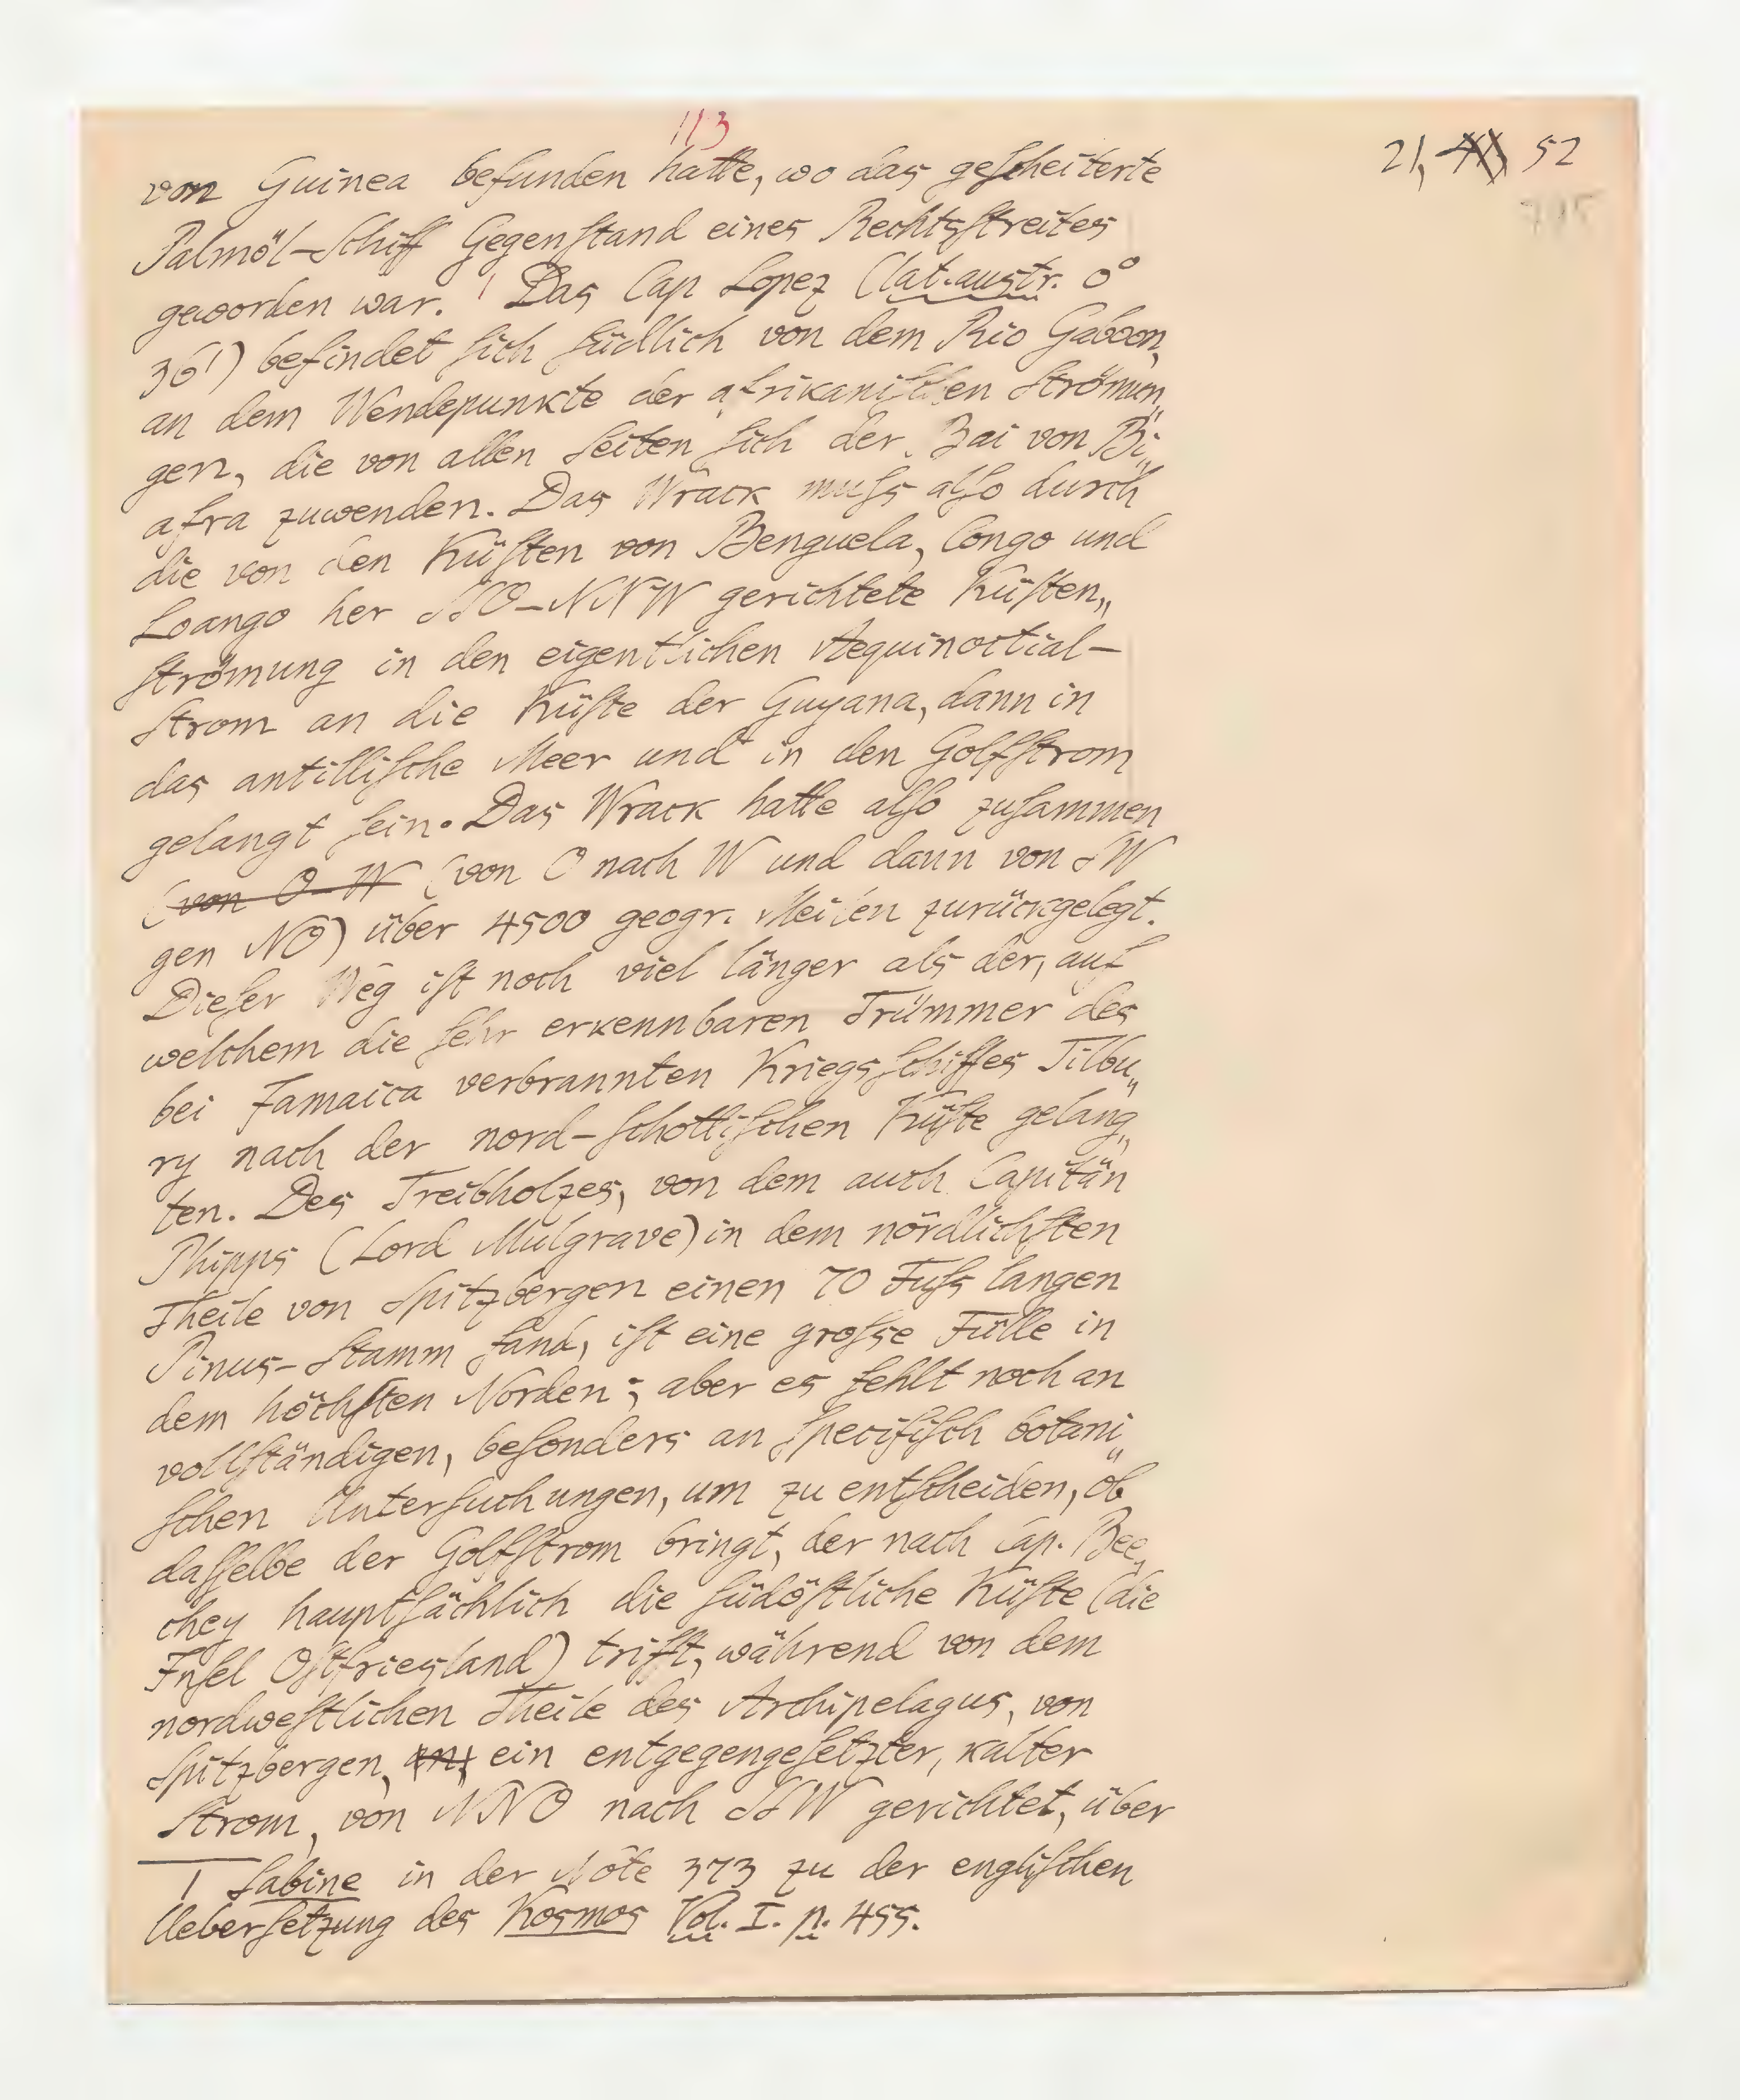 113
21, 52
795
von Guinea befunden hatte, wo das gescheiterte
Palmöl-Schiff Gegenstand eines Rechtsstreites
geworden war. ¹ Das Cap Lopez (lat. austr. 0°
36') befindet sich südlich von dem Rio Gaboon,
an dem Wendepunkte der afrikanischen Strömun„
gen, die von allen Seiten sich der Bai von Bi„
afra zuwenden. Das Wrack muss also durch
die von den Küsten von Benguela, Congo und
Loango her SSO-NNW gerichtete Küsten„
strömung in den eigentlichen Aequinoctial-
Strom an die Küste der Guyana, dann in
das antillische Meer und in den Golfstrom
gelangt sein. Das Wrack hatte also zusammen
(von O-W (von O nach W und dann von SW
gen NO) über 4500 geogr. Meilen zurückgelegt.
Dieser Weg ist noch viel länger als der, auf
welchem die sehr erkennbaren Trümmer des
bei Jamaica verbrannten Kriegsschiffes Tilbu„
ry nach der nord-schottischen Küste gelang„
ten. Des Treibholzes, von dem auch Capitän
Phipps (Lord Mulgrave) in dem nördlichsten
Theile von Spitzbergen einen 70 Fuss langen
Pinus-Stamm fand, ist eine grosse Fülle in
dem höchsten Norden; aber es fehlt noch an
vollständigen, besonders an specifisch botani„
schen Untersuchungen, um zu entscheiden, ob
dasselbe der Golfstrom bringt, der nach Cap. Bee„
chey hauptsächlich die südöstliche Küste (die
Insel Ostfriesland) trifft, während von dem
nordwestlichen Theile des Archipelagus, von
Spitzbergen, ein entgegengesetzter, kalter
Strom, von NNO nach SSW gerichtet, über
1 Sabine in der Note 373 zu der englischen
Uebersetzung des Kosmos Vol. I. p. 455.